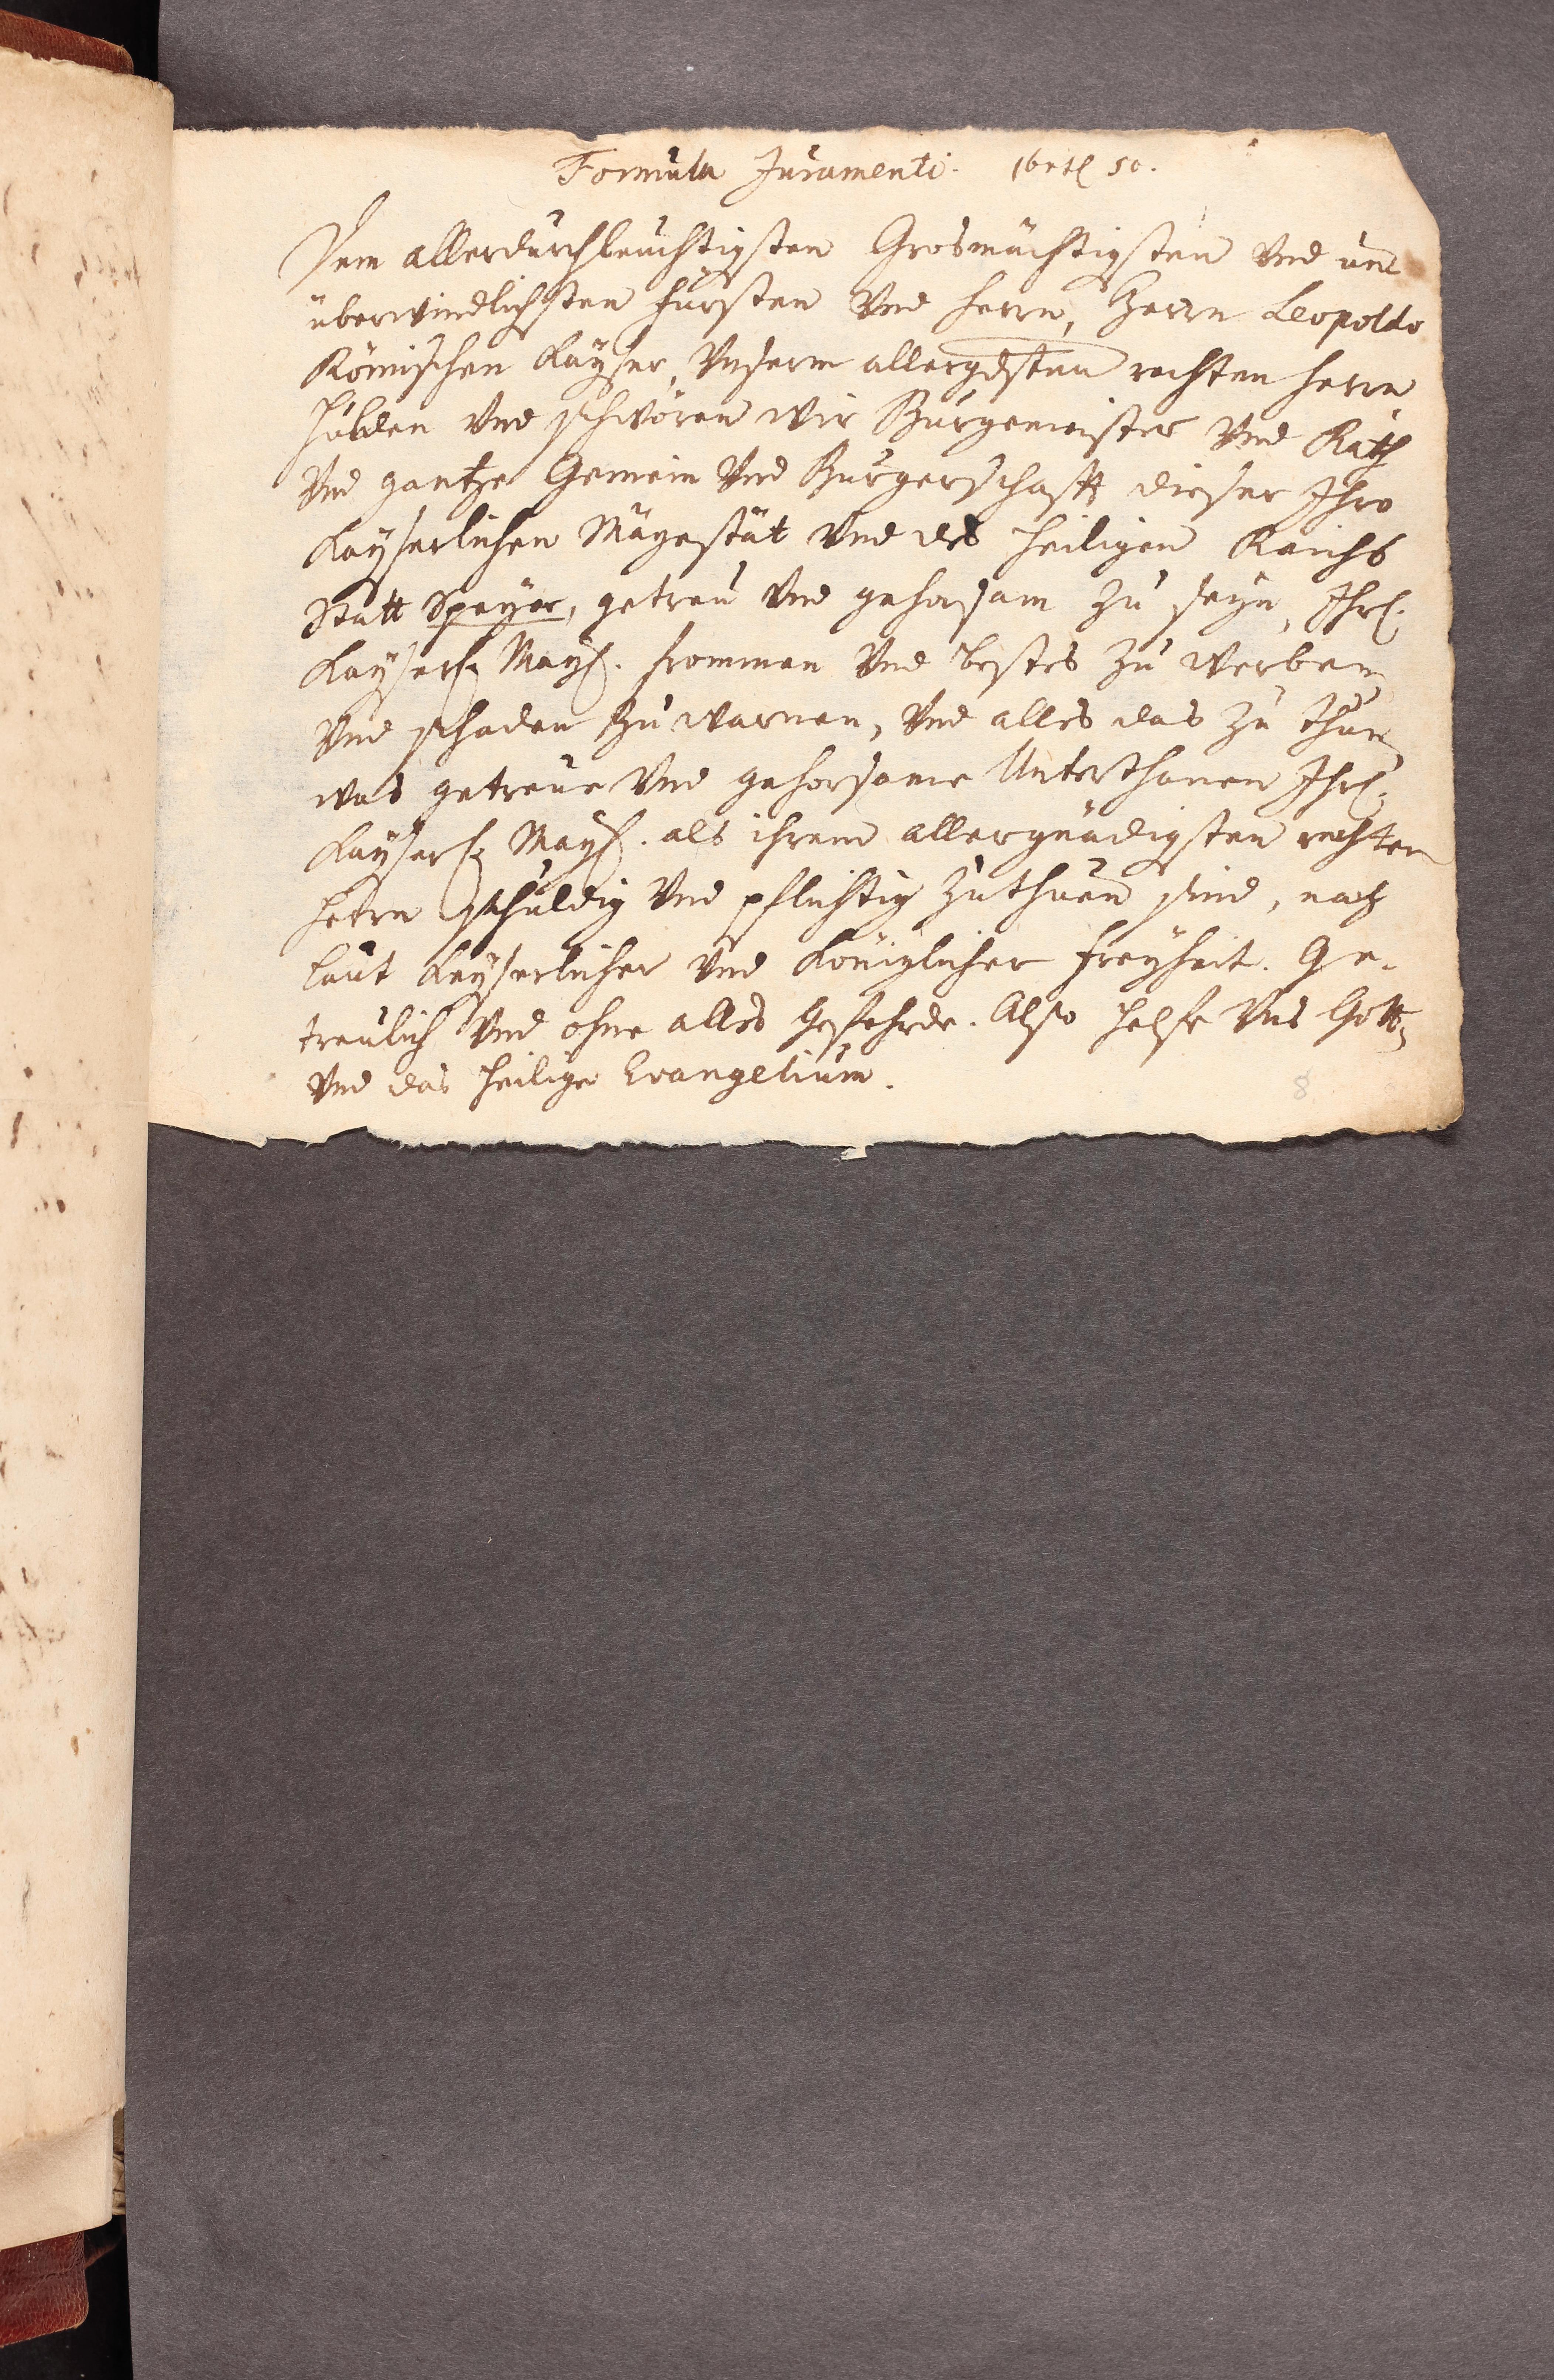 Formula Juramenti.
Dem allerdurchleuchtigsten Grosmächtigsten Vnd un¬
überwindlichsten Fürsten Vnd Herrn, Herrn Leopoldo
Römischen Kayser, Vnserm allergdsten rechten Herrn
Hulden Vnd schwören wir Bürgemeister Vnd Rath
Vnd gantze Gemein Vnd Burgerschafft dieser Ihro
Kayserlichen Mayestät Vnd des Heiligen Reichs
Statt Speyer, getreu Vnd gehorsam zu seyn, Ihrl.
Kayserl. Mayl. frommen Vnd bestes zu werben
Vnd schaden zu warnen, Vnd alles das zu thun
was getreue Vnd gehorsame Unterthanen Ihrl.
Kayserl. Mayl. als ihrem allergnädigsten rechten
Herrn schuldig Vnd pflichtig zuthuen sind, nach
laut Keyserlicher Vnd Königlicher Freyheit. Ge-
treulich Vnd ohne alles Gefehrde. Also helfe Vns Gott,
Vnd das heilige Evangelium.
8